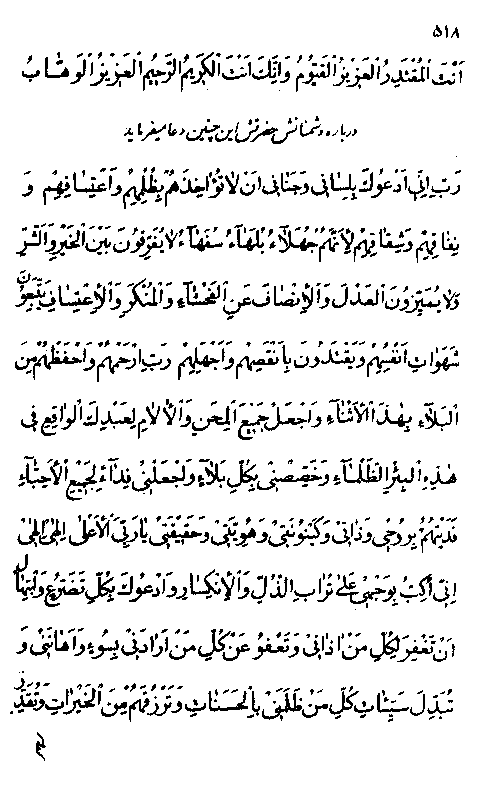 ۵۱۸
اَنْتَ الْمُقْتَدِرُ الْعَزِیزُ الْقَیُّومُ وَاِنَّكَ اَنْتَ الْكَرِیمُ الرَّحِیمُ الْعَزِیزُ الْوَهَّابُ
درباره دشمنانش حضرتش این چنین دعا میفرماید
رَبِّ اِنّی اَدْعُوكَ بِلِسانی وَجَنانی اَنْ لاتُؤاخِذَهُمْ بِظُلْمِهِمْ وَاعْتِسافِهِمْ وَ
نِفاقِهِمْ وَشِقاقِهِمْ لِاَنَّهُمْ جُهَلآءُ بُلَهآءُ سُفَهآءُ لایُفَرِّقُونَ بَیْنَ الْخَیْرِ وَالشَّرِّ
وَلایُمَیِّزُونَ الْعَدْلَ وَالْاِنْصافَ عَنِ الْفَحْشآءِ وَالْمُنْكَرِ وَالْاِعْتِسافِ یَتَّبِعُونَ
شَهَواتِ اَنْفُسِهِمْ وَیَقْتَدُونَ بِاَنْقَصِهِمْ وَاَجْهَلِهِمْ رَبِّ ارْحَمْهُمْ وَاحْفَظْهُمْ مِنَ
الْبَلآءِ بِهٰذَا الْاَثْنآءِ وَاجْعَلْ جَمِیعَ الْمِحَنِ وَالْآلامِ لِعَبْدِكَ الْواقِعِ فی
هٰذِهِ الْبِئْرِ الظَّلْمآءِ وَخَصِّصْنی بِكُلِّ بَلآءٍ وَاجْعَلْنی فِدآءً لِجَمِیعِ الْاَحِبّآءِ
فَدَیْتُهُمْ بِرُوحی وَذاتی وَكَیْنُونَتی وَهُوِیَّتی وَحَقِیقَتی یا رَبِّیَ الْاَعْلی اِلهی اِلهی
اِنّی اُكِبُّ بِوَجْهی عَلی تُرابِ الذُّلِّ وَالْاِنْكِسارِ وَاَدْعُوكَ بِكُلِّ تَضَرُّعٍ وَابْتِهالٍ
اَنْ تَغْفِرَ لِكُلِّ مَنْ اٰذانی وَتَعْفُوَ عَنْ كُلِّ مَنْ اَرادَنی بِسُوءٍ وَاَهانَنی وَ
تُبَدِّلَ سَیِّئاتِ كُلِّ مَنْ ظَلَمَنی بِالْحَسَناتِ وَتَرْزُقَهُمْ مِنَ الْخَیْراتِ وَتُقَدِّرَ